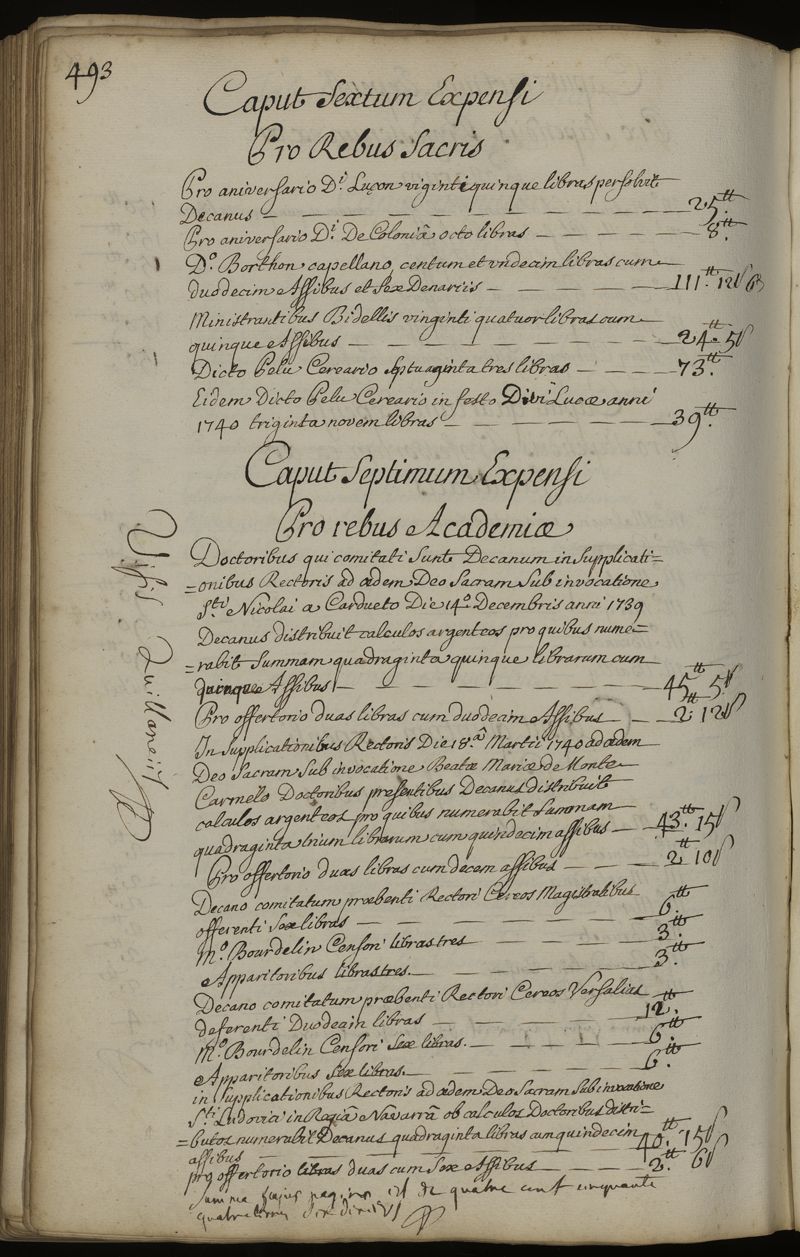 493
Caput Sextum Expensi
Pro Rebus Sacris
Pro aniversario D.i Luçon viginti quinque libras persolvit
Decanus — 25.tt
Pro aniversario D.i De Coloniâ octo libras — 8.tt
D.o Borthon capellano centum et undecim libras cum
duodecim Assibus et sex Denariis — 111.tt 12ſ 6
Ministrantibus Bidellis vinginti quatuor libras cum
quinque Assibus — 24.tt 5ſ
Dicto Pelu Cereario septuaginta tres libras — 73.tt
Eidem Dicto Pelu Cereario in festo Divi Lucæ anni
1740 triginta novem libras — 39.tt
Caput Septimum Expensi
Pro rebus Academiæ
Doctoribus qui comitati sunt Decanum in Supplicati=
=onibus Rectoris ad ædem Deo Sacram Sub invocatione
S.ti Nicolai a Cardueto Die 14.o Decembris anni 1739
Decanus distribuit calculos argenteos pro quibus nume=
=rabit Summam quadraginta quinque librarum cum
quinque Assibus — 45.tt 5ſ
Pro offertorio duas libras cum duodecim Assibus — 2.tt 12ſ
In Supplicationibus Rectoris Die 18.a Martii 1740 ad ædem
Deo Sacram Sub invocatione Beatæ Mariæ de Monte
Carmelo Doctoribus presentibus Decanus distribuit
calculos argenteos pro quibus numerabit Summam
quadraginta trium librarum cum quindecim assibus — 43.tt 15ſ
Pro offertorio duas libras cum decem assibus — 2.tt 10ſ
Decano comitatum præbenti Rectori Cereos Magistratibus
offerenti sex libras — 6.tt
M.o Bourdelin Censori libras tres — 3.tt
Apparitoribus libras tres. — 3.tt
Decano comitatum præbenti Rectori Cereos Versalius
deferenti Duodecim libras — 12.tt
M.o Bourdelin Censori sex libras. — 6.tt
Apparitoribus sex libras. — 6.tt
in Supplicationibus Rectoris ad ædem Deo Sacram Sub invocatione
S.ti Ludovici in Regiâ Navarrâ ob calculos Doctoribus distri=
=butos numerabit Decanus quadraginta libras cum quindecim
assibus — 40.tt 15ſ
pro offertorio libras duas cum sex Assibus — 2.tt 6ſ
Summa hujus paginæ est de quatre cent cinquante
quatre livres six deniers